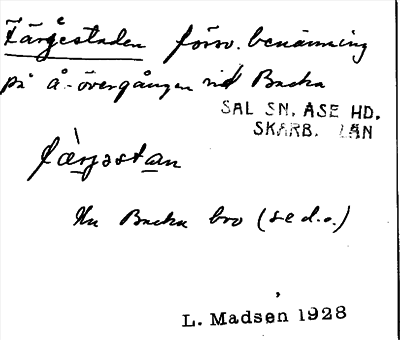 Färgestaden förv. benämning
på å-övergången vid Backa
SAL SN, ÅSE HD.
SKARB. LÄN
fàrjəstan
Nu Backa bro (se d.o.)
L. Madsen 1928